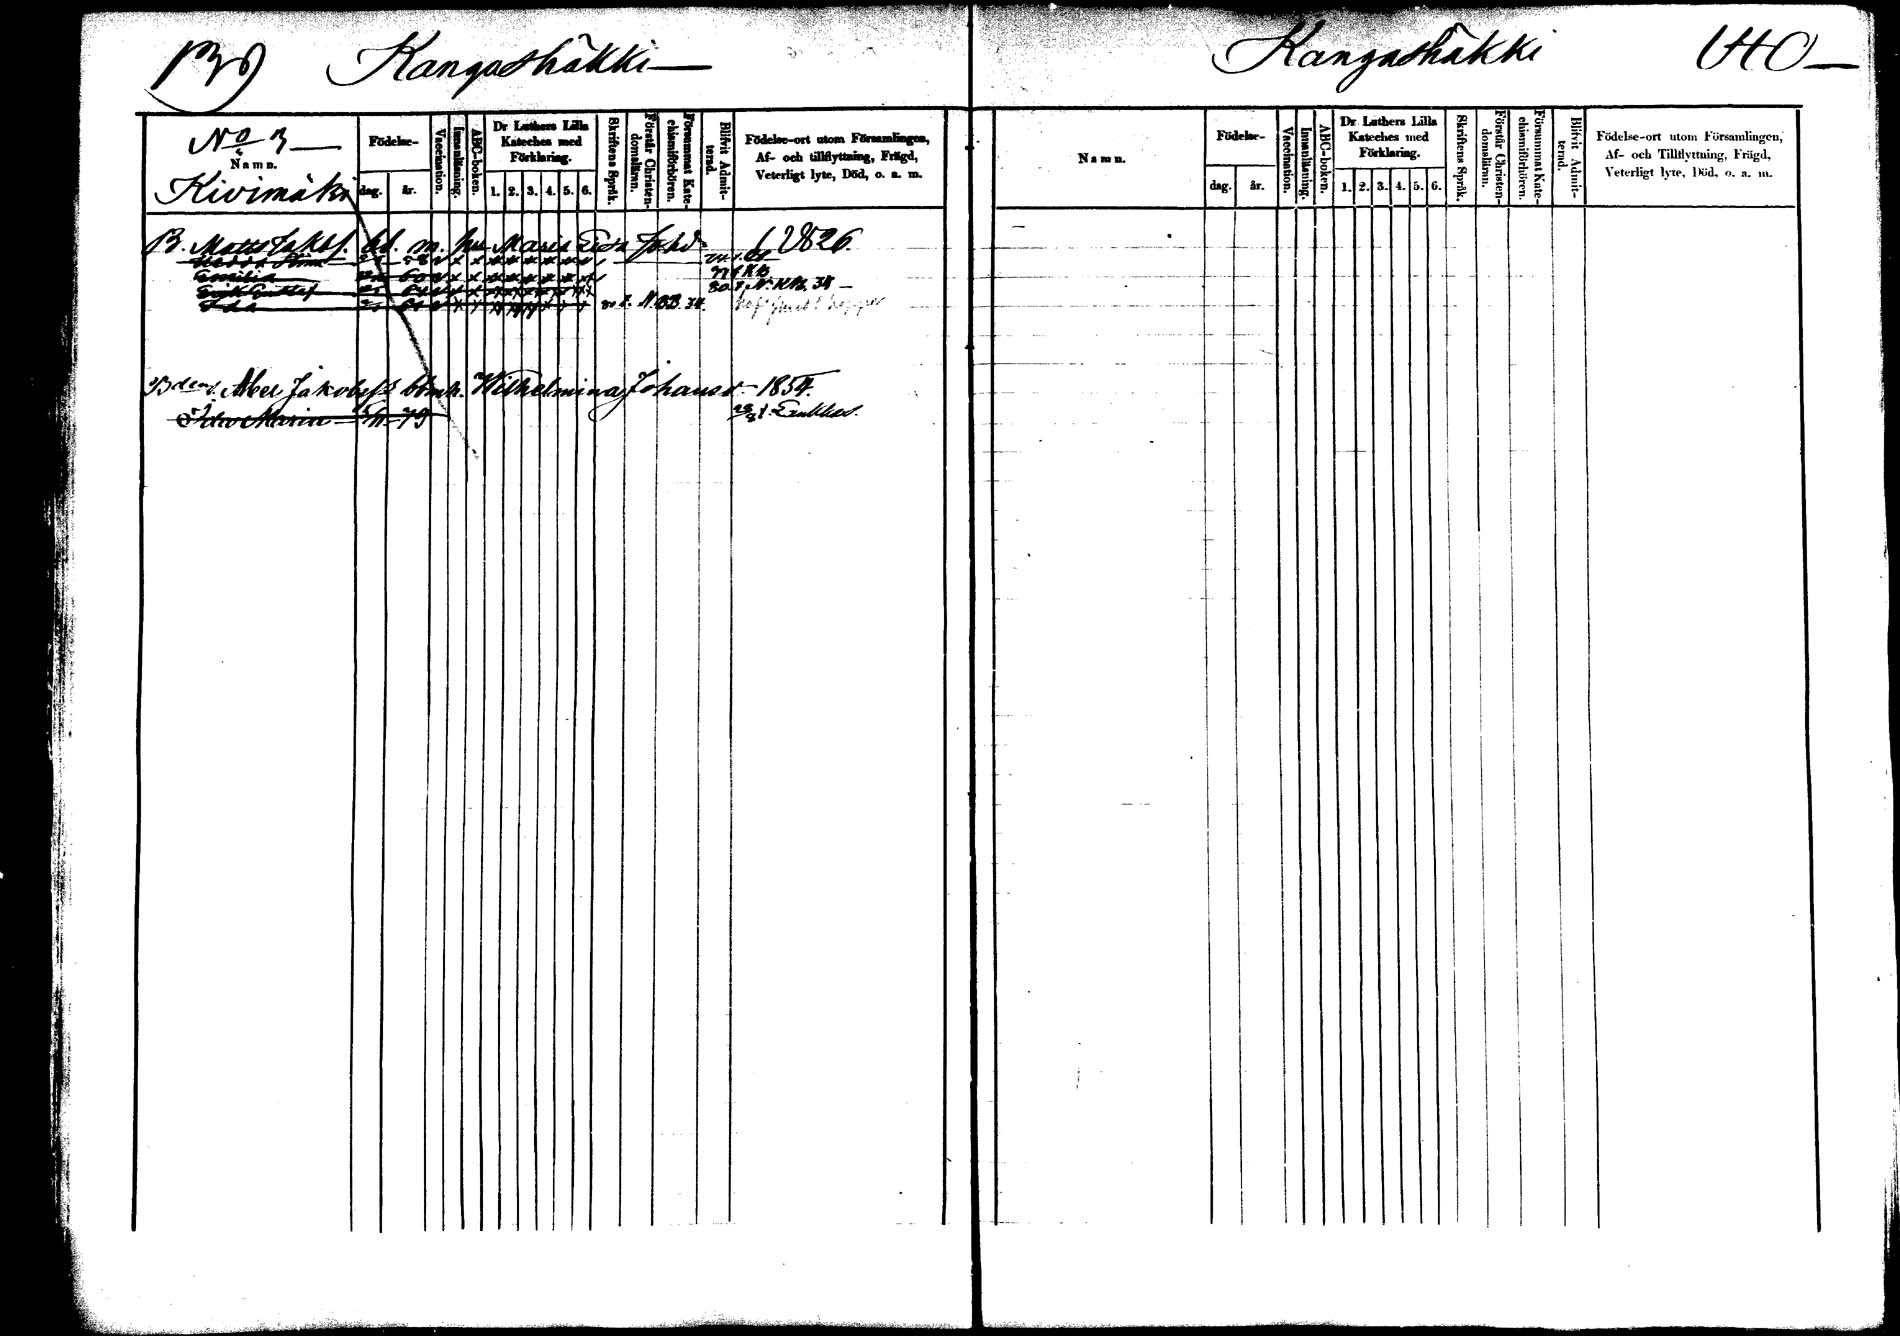 139 Kangashäkki
No 3
Namn.
Kivimäki
Födelse-
dag.
år.
Vaccination.
Innanläsning.
ABC-boken.
Dr Luthers Lilla
Kateches med
Förklaring.
1. 2. 3. 4. 5. 6.
Skriftens Språk.
Förstår Christen-
domsläran.
Försummat Kate-
chismiförhören.
Blifvit Admit-
terad.
Födelse-ort utom Församlingen,
Af- och tillflyttning, Frägd,
Veterligt lyte, Död, o. a. m.
B. Matts Jakobs. Maria Johd. 1826.
Hedda Stina 58
Emilia 60
Erik Gustaf N. KB. 38
Ida N. BB. 34.
Abel Jakobss Wilhelmina Johansd 1854.
Ida Maria 79
Kangashäkki 140
Namn.
Födelse-
dag.
år.
Vaccination.
Innanläsning.
ABC-boken.
Dr Luthers Lilla
Kateches med
Förklaring.
1. 2. 3. 4. 5. 6.
Skriftens Språk.
Förstår Christen-
domsläran.
Försummat Kate-
chismiförhören.
Blifvit Admit-
terad.
Födelse-ort utom Församlingen,
Af- och Tillflyttning, Frägd,
Veterligt lyte, Död, o. a. m.